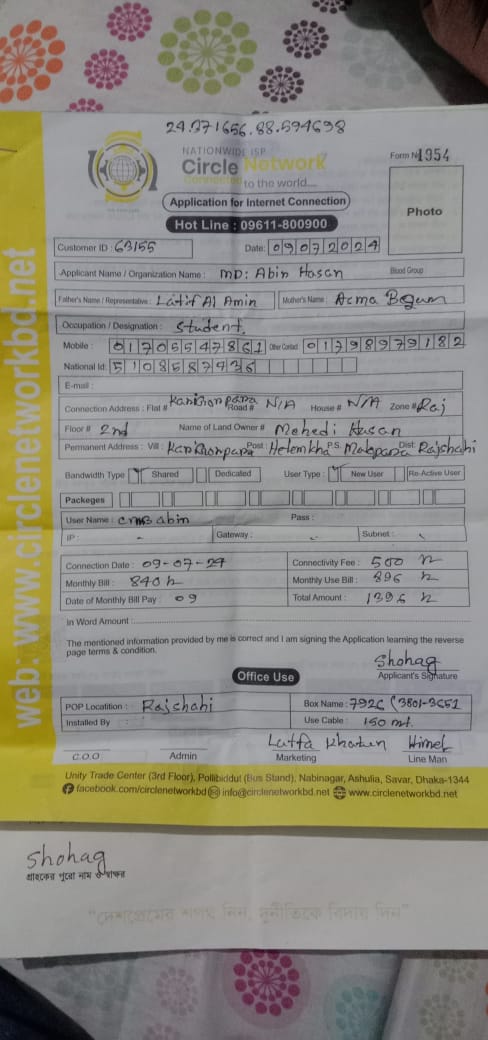 24.371656,88.594698
NATIONWIDE ISP
Circle Network
Connected to the world....
Form № 1954
Application for Internet Connection
Photo
Hot Line : 09611-800900
Customer ID : 63155 Date: 09072024
Applicant Name / Organization Name : MD: Abin Hasan Blood Group
Father's Name / Representative : Latif Al Amin Mother's Name : Asma Begum
Occupation / Designation : Student.
Mobile : 01705547861 Other Contact 01798979182
National Id: 5108587436
E-mail :
Connection Address : Flat # Road # N/A House # N/A Zone # Raj
Floor # 2nd Name of Land Owner # Mehedi Hasan
Permanent Address : Vill : Post : Helemkha P.S. Dist. Rajshahi
Bandwidth Type Shared Dedicated User Type : New User Re-Active User
Packeges
User Name : cmsabin Pass :
IP : - Gateway : - Subnet :
Connection Date : 09-07-24 Connectivity Fee : 500
Monthly Bill : 840 Monthly Use Bill : 896
Date of Monthly Bill Pay : 09 Total Amount : 1396
In Word Amount :
The mentioned information provided by me is correct and I am signing the Application learning the reverse
page terms & condition.
Shohag
Applicant's Signature
Office Use
POP Locatition : Rajshahi Box Name : 7926 (3801-3651
Installed By : Use Cable : 150 mt.
Lutfa Khatun Himel
C.O.O Admin Marketing Line Man
Unity Trade Center (3rd Floor), Pollibiddut (Bus Stand), Nabinagar, Ashulia, Savar, Dhaka-1344
facebook.com/circlenetworkbd info@circlenetworkbd.net www.circlenetworkbd.net
web: www.circlenetworkbd.net
Shohag
গ্রাহকের পুরো নাম ও স্বাক্ষর
"দেশপ্রেমের শপথ নিন, দুর্নীতিকে বিদায় দিন"